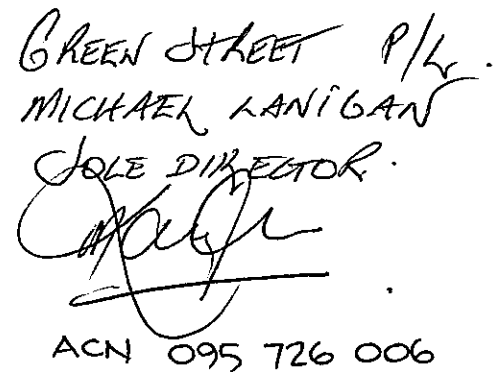 GREEN STREET P/L.
MICHAEL LANIGAN
SOLE DIRECTOR.
ACN 095 726 006